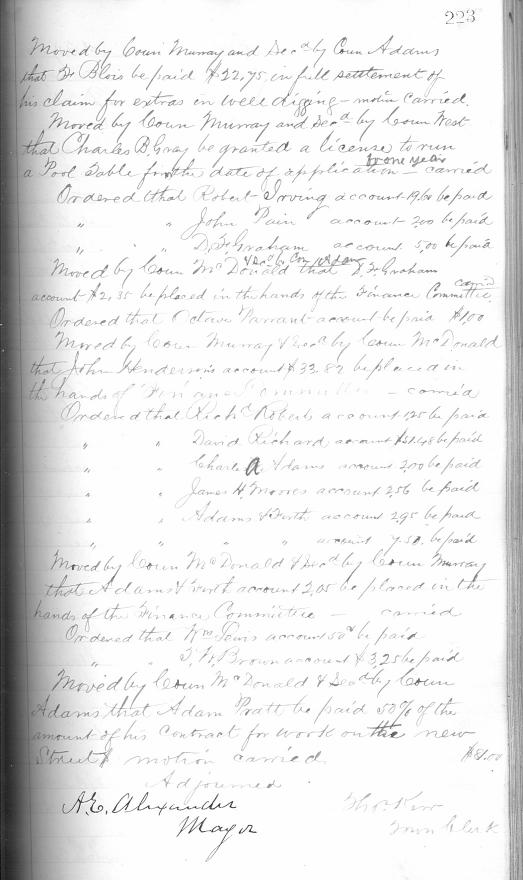 223
Moved by Coun Murray and Secd by Coun Adams
that F. Blois be paid $22,75, in full settlement of
his claim for extras in well digging – motion carried.
Moved by Coun Murray and Secd by Coun West
that Charles B. Gray be granted a license to run
for one year
a Pool Table from the date of application – carried
Ordered that Robert Irving account 19,60 be paid
" " John Pain account 2,00 be paid
" " D, F, Graham account 5,00 be paid
& Secd by Coun Adams
Moved by Coun McDonald that D. F. Graham
carrid
account $2,35 be placed in the hands of the Finance Committee,
Ordered that Octave Parrant account be paid $1,00
Moved by Coun Murray & Secd by Coun McDonald
that John Hendersons account $33.82 be placed in
the hands of Finance Committee – carried
Ordered that Richd Roberts account 1,25 be paid
" " David Richard account $51,48 be paid
" " Charles A. Adams account 3,00 be paid
" " James H. Morris account 2,56 be paid
" " Adams & Firth account 2,95 be paid
" " " " account 7,50, be paid
Moved by Coun McDonald & Secd by Coun Murray
that Adams & Firth account 2,05 be placed in the
hands of the Finance Committee – carried
Ordered that Wm account 50c be paid
" " T. W. Brown account $3,25 be paid
Moved by Coun McDonald & Secd by Coun
Adams that Adam Pratt be paid 50% of the
amount of his Contract for work on the new
Street motion carried. $81.00
Adjourned
A. E. Alexander Thos. Kerr
Mayor Town Clerk